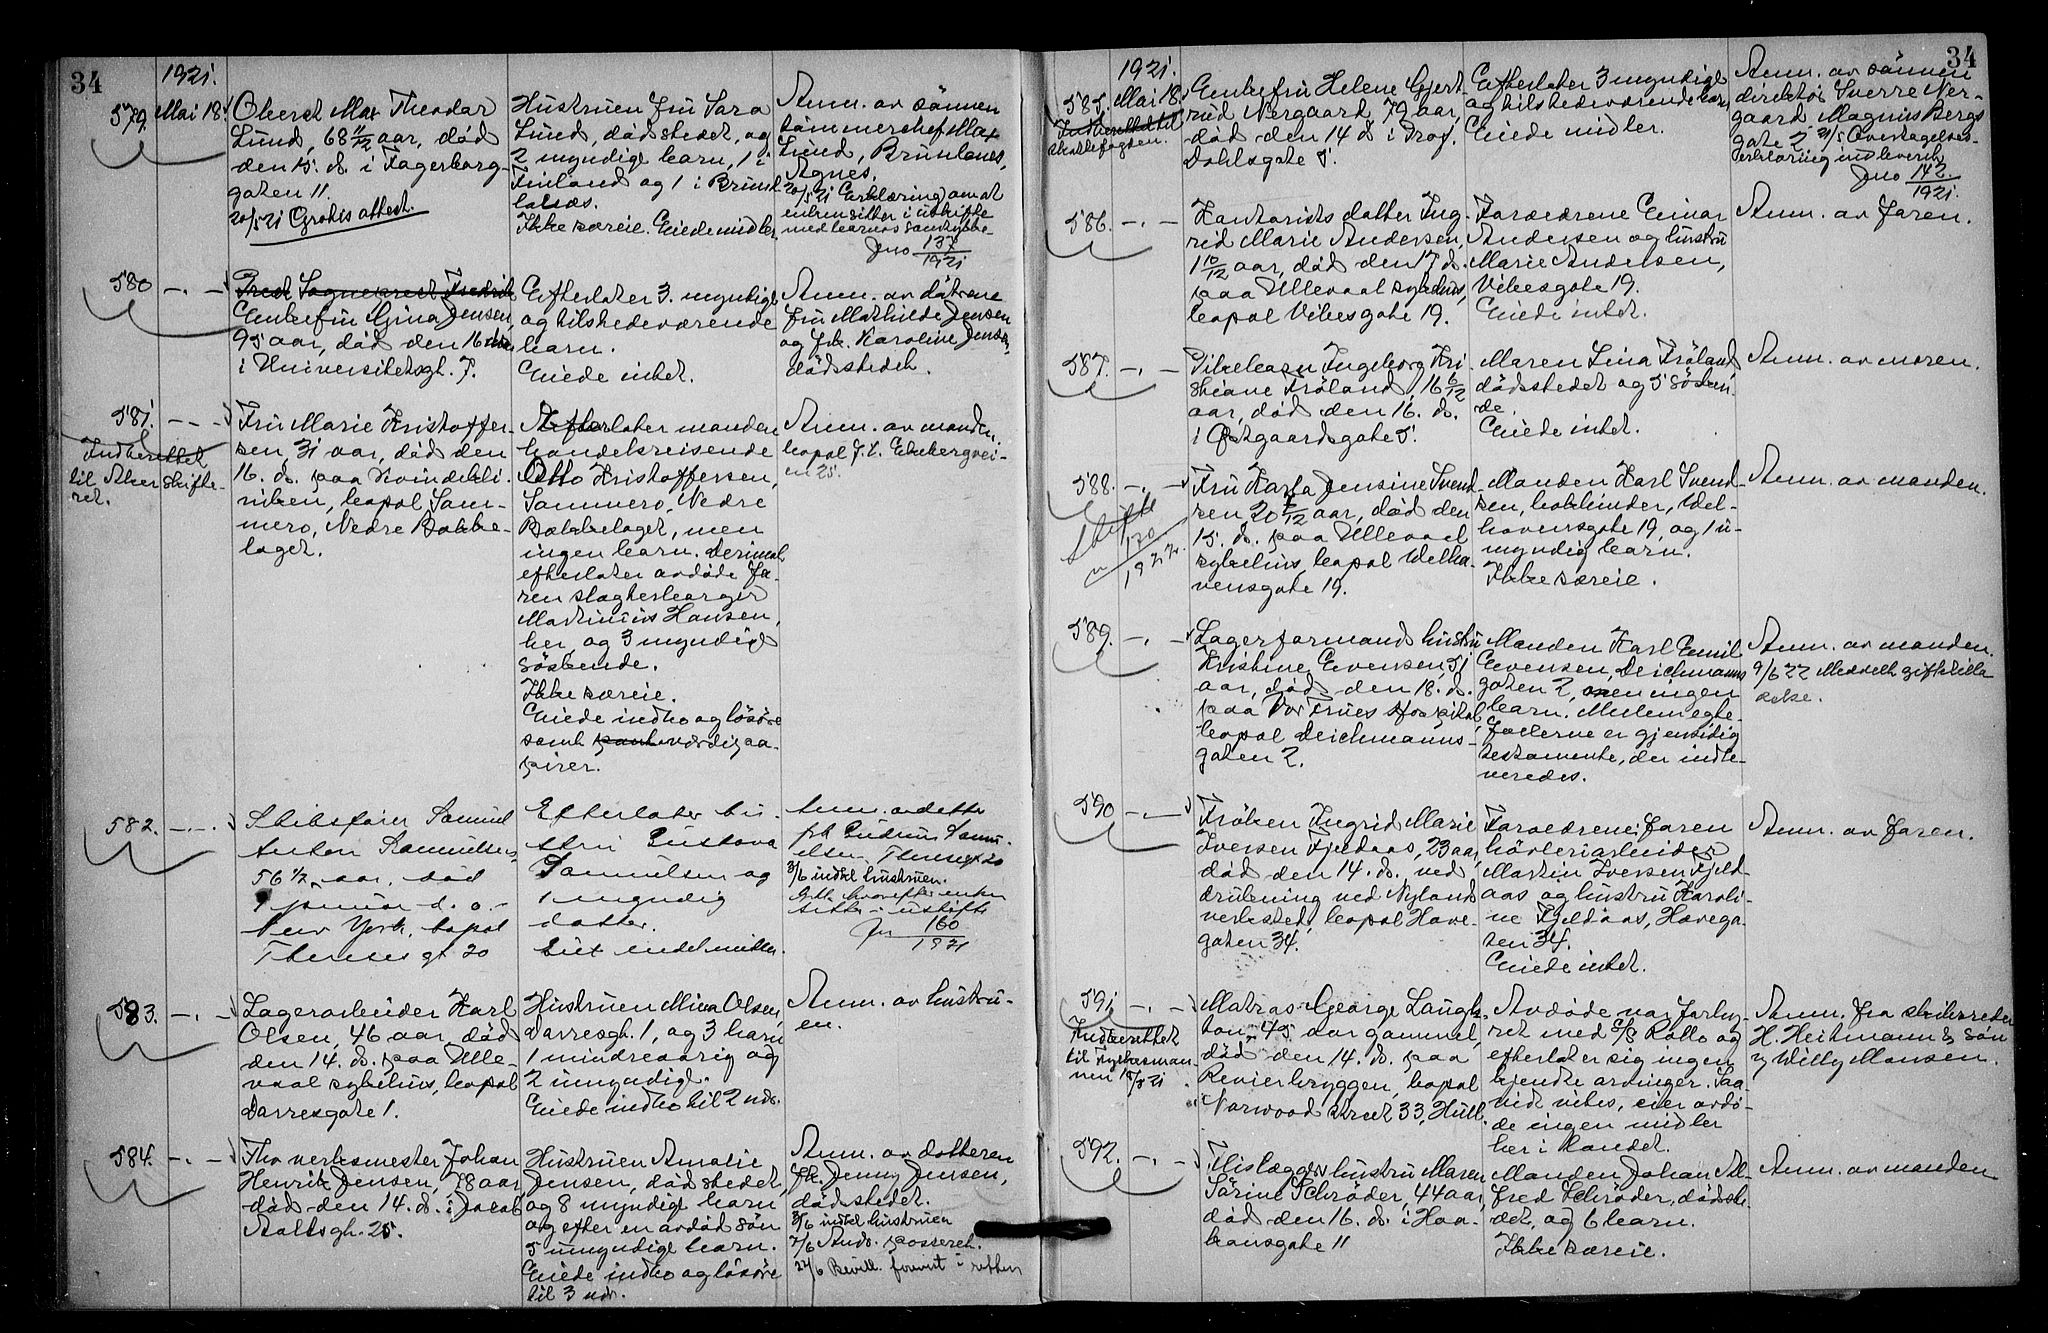 34
1921.
579. Mai 18.
Oberst Max Theodor
Lund, 68 11/12 aar, död
den 15. ds. i Fagerborg-
gaten 11.
20/5 21 Gratis attest.
Hustruen fru Sara
Lund, dödsstedet, og
2 myndige barn, 1 i
Finland og 1 i Brunl
Ikke særeie. Eiede midler.
Anm. av sönnen
Max
Lund, Brunlanes,
Agnes.
20/5 21 Erklæring om at
enken sitter i uskifte
med barnas samtykke
Jno 137/1921
580 -.-
Præst Sogneprest Fredrik
Enkefru Gina Jensen,
95 aar, död den 16 ds.
i Universitetsgt. 7.
Efterlater 3. myndige
og tilstedeværende
barn.
Eiede intet.
Anm. av dötrene
fru Mathilde Jensen
og frk. Karoline Jensen,
dödsstedet.
581. -.-
Indberettet
til Aker skifte-
ret.
Fru Marie Kristoffer-
sen, 31 aar, död den
16. ds. paa Kvindekli-
niken, bopæl Sam-
mero, Nedre Bække-
laget.
Efterlater manden
handelsreisende
Otto Kristoffersen,
Sammero, Nedre
Bækkelaget, men
ingen barn. Derimot
efterlater avdöde fa-
ren slagterborger
Martinius Hansen,
her, og 3 myndige
söskende.
Ikke særeie.
Eiede indbo og lösöre
samt værdipa-
pirer.
Anm. av manden,
bopæl f. t. Ekebergvei-
en 25.
582. -.-
Skibsförer Samuel
Anton Samuelsen,
56 1/2 aar, död
januar d. a. i
New York, bopæl
Thereses gt 20
Efterlater hu-
stru Gustava
Samuelsen og
1 myndig
datter.
Anm. av datter
frk Gudrun Samu-
elsen Theresegt 20
3/6 indkl hustruen.
sitter i uskifte
Jno 160/1921
583. -.-
Lagerarbeider Karl
Olsen, 46 aar, död
den 14. ds. paa Ulle-
vaal sykehus, bopæl
Darresgate 1.
Hustruen Mina Olsen,
Darresgt. 1, og 3 barn
1 mindreaarig og
2 umyndige.
Eiede indbo til 2 nds.
Anm. av hustru-
en.
584. -.-
Fhv. verksmester Johan
Henrik Jensen, 78 aar
död den 14. ds. i Jacob
Aallsgt. 25.
Hustruen Amalie
Jensen, dödsstedet,
og 8 myndige barn
og efter en avdöd sön
5 umyndige barn.
Eiede indbo og lösöre
til 3 nds.
Anm. av datteren
frk. Jenny Jensen,
dödsstedet.
3/6 indkl hustruen
7/6 Ands. passeret.
27/6 Bevill. forevist i retten
34
1921.
585. Mai 18.
Indberettet til
skattefogden.
Enkefru Helene Gjert-
rud Nergaard, 72 aar,
död den 14 ds i Prof.
Dahlsgate 5.
Efterlater 3 myndige
og tilstedeværende barn
Eiede midler.
Anm. av sönnen
direktör Sverre Ner-
gaard Magnus Bergs
gate 2 21/5 Overtagelses-
erklæring indleveret
Jno 142/1921.
586. -.-
Kontorists datter Ing-
rid Marie Andersen,
1 10/12 aar, död den 17 ds.
paa Ullevaal sykehus,
bopæl Vibesgate 19.
Forældrene Einar
Andersen og hustru
Marie Andersen,
Vibesgate 19.
Eiede intet.
Anm. av faren.
587. -.-
Pikebarn Ingeborg Kri-
stiane Fröland, 16 6/12
aar, död den 16. ds.
i Østgaardsgate 5.
Moren Lina Fröland
dödsstedet og 5 sösken
de.
Eiede intet.
Anm. av moren.
588. -.-
Skifte
170
1922.
Fru Karla Jensine Svend-
sen 20 /12 aar, död den
15. ds. paa Ullevaal
sykehus, bopæl Welha-
vensgate 19.
Manden Karl Svend-
sen, bokbinder, Wel-
havensgate 19, og 1 u-
myndig barn.
Ikke særeie.
Anm. av manden.
589. -.-
Lagerformands hustru
Kristine Evensen, 51
aar, död den 18. ds.
paa Vor Frues Hospital,
bopæl Deichmanns-
gaten 2.
Manden Karl Emil
Evensen, Deichmanns
gaten 2, men ingen
barn. Mellem egte-
fællerne er gjensidig
testamente, der indle-
veredes.
Anm. av manden.
9/6 22 Meddelt giftetilla
delse.
590 -.-
Fröken Ingrid Marie
Iversen Fjeldaas, 23 aar,
död den 14. ds. ved
drukning ved Nylands
verksted, bopæl Have-
gaten 34.
Forældrene: faren
hövleriarbeider
Martin Iversen Fjeld-
aas og hustru Karoli-
ne Fjeldaas, Havega-
ten 34.
Eiede intet.
Anm. av faren.
591 -.-
Indberettet
til Fylkesman-
nen 18/5 21
Matros George Laugh-
ton, 45 aar gammel,
död den 14. ds. paa
Revierbryggen, bopæl
Norwood street 33, Hull.
Avdöde var forhy-
ret med S/S Rollo og
efterlater sig ingen
kjendte arvinger. Saa-
vidt vites, eier avdö-
de ingen midler
her i landet.
Anm. fra skibsreder
H. Heitmann & Sön
v/ Willy Monsen.
592. -.-
Flislægger hustru Maren
Sörine Schröder, 44 aar,
död den 16. ds. i Haa-
konsgate 11
Manden Johan Al-
fred Schröder, dödsste-
det, og 6 barn.
Ikke særeie.
Anm. av manden